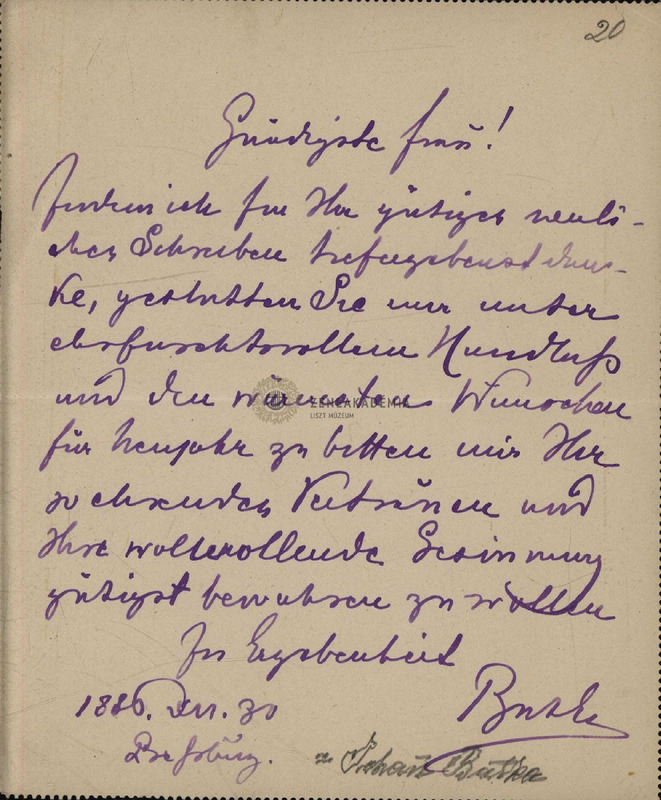 20
Gnädigste Frau!
Indem ich für Ihr gütiges neuli-
ches Schreiben tiefergebenst dan-
ke, gestatten Sie mir unter
ehrfurchtsvollem Handkuß
und den wärmsten Wünschen
für Neujahr zu bitten mir Ihr
so ehrendes Vertrauen und
Ihre wollwollende Gesinnung
gütigst bewahren zu wollen
In Ergebenheit
Batka
1886. Dec. 30
Preßburg.
Johann Batka
ZENEAKADÉMIA
LISZT MÚZEUM